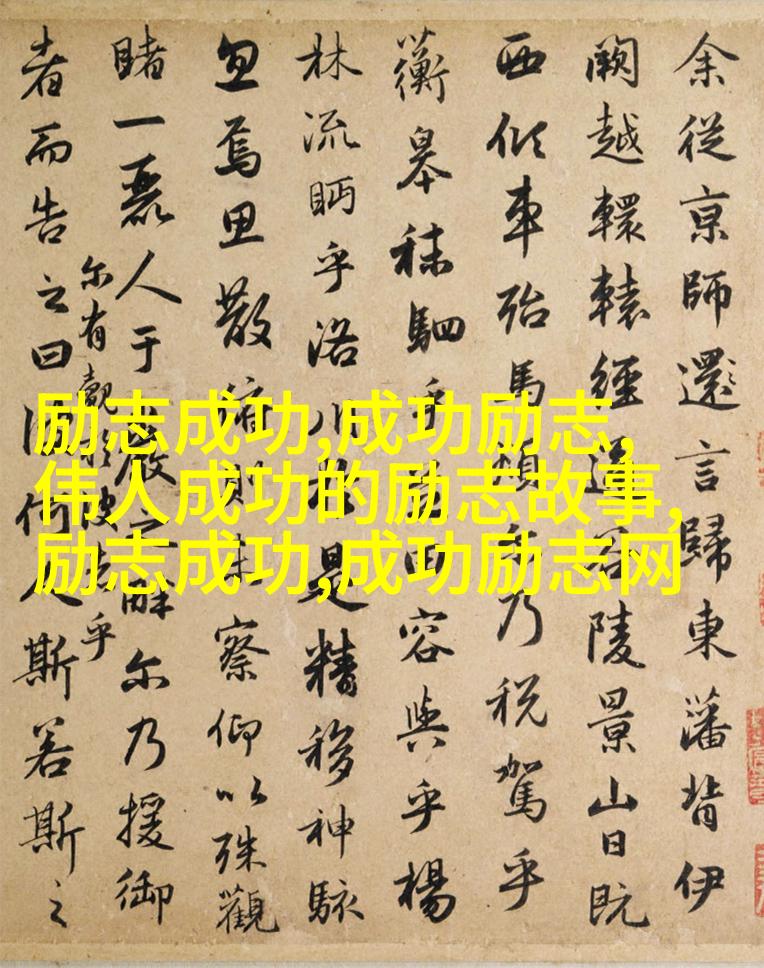 余從京師還言歸東藩背伊
闕越轘轅經通谷陵景山日既
西傾車殆馬煩乃税駕乎
蘅皋秣駟乎田容與乎楊
林流眄乎洛川於是精移神駭
忽焉思散俯則未察仰以殊觀
睹一麗人于巖之畔尔乃援御
者而告之曰彼何人斯若斯之
尔有覿於彼者乎
励志成功,成功励志,
伟人成功的励志故事,
励志成功,成功励志网